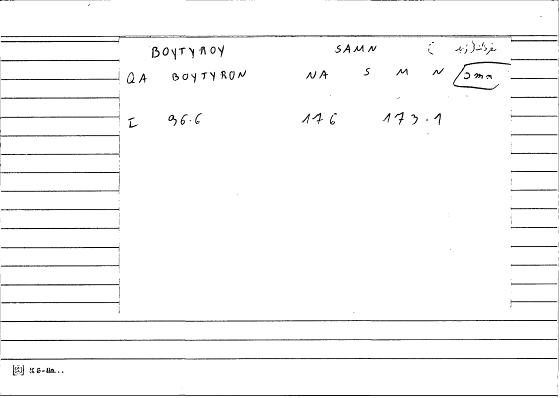 BOYTYROY SAMN
QA BOYTYRON NA S M N smn
I 96.6 176 173.1